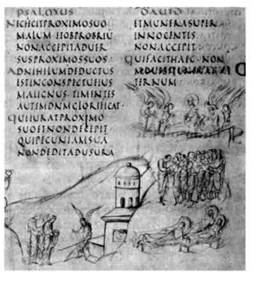 PSALMUS
NECFECITPROXIMOSUO
MALUM ETOBPROBRIU
NONACCEPITADUER
SUSPROXIMOSSUOS
ADNIHILUMDEDUCTUS
ESTINCONSPECTUEIUS
MALIGNUS TIMENTES
AUTEMDNMGLORIFICAT
QUIIURATPROXIMO
SUOETNONDECIPIT
QUIPECUNIAMSUA
NONDEDITADUSURA
DAUID
ETMUNERASUPER
INNOCENTES
NONACCEPIT
QUIFACITHAEC NON
ERNUM